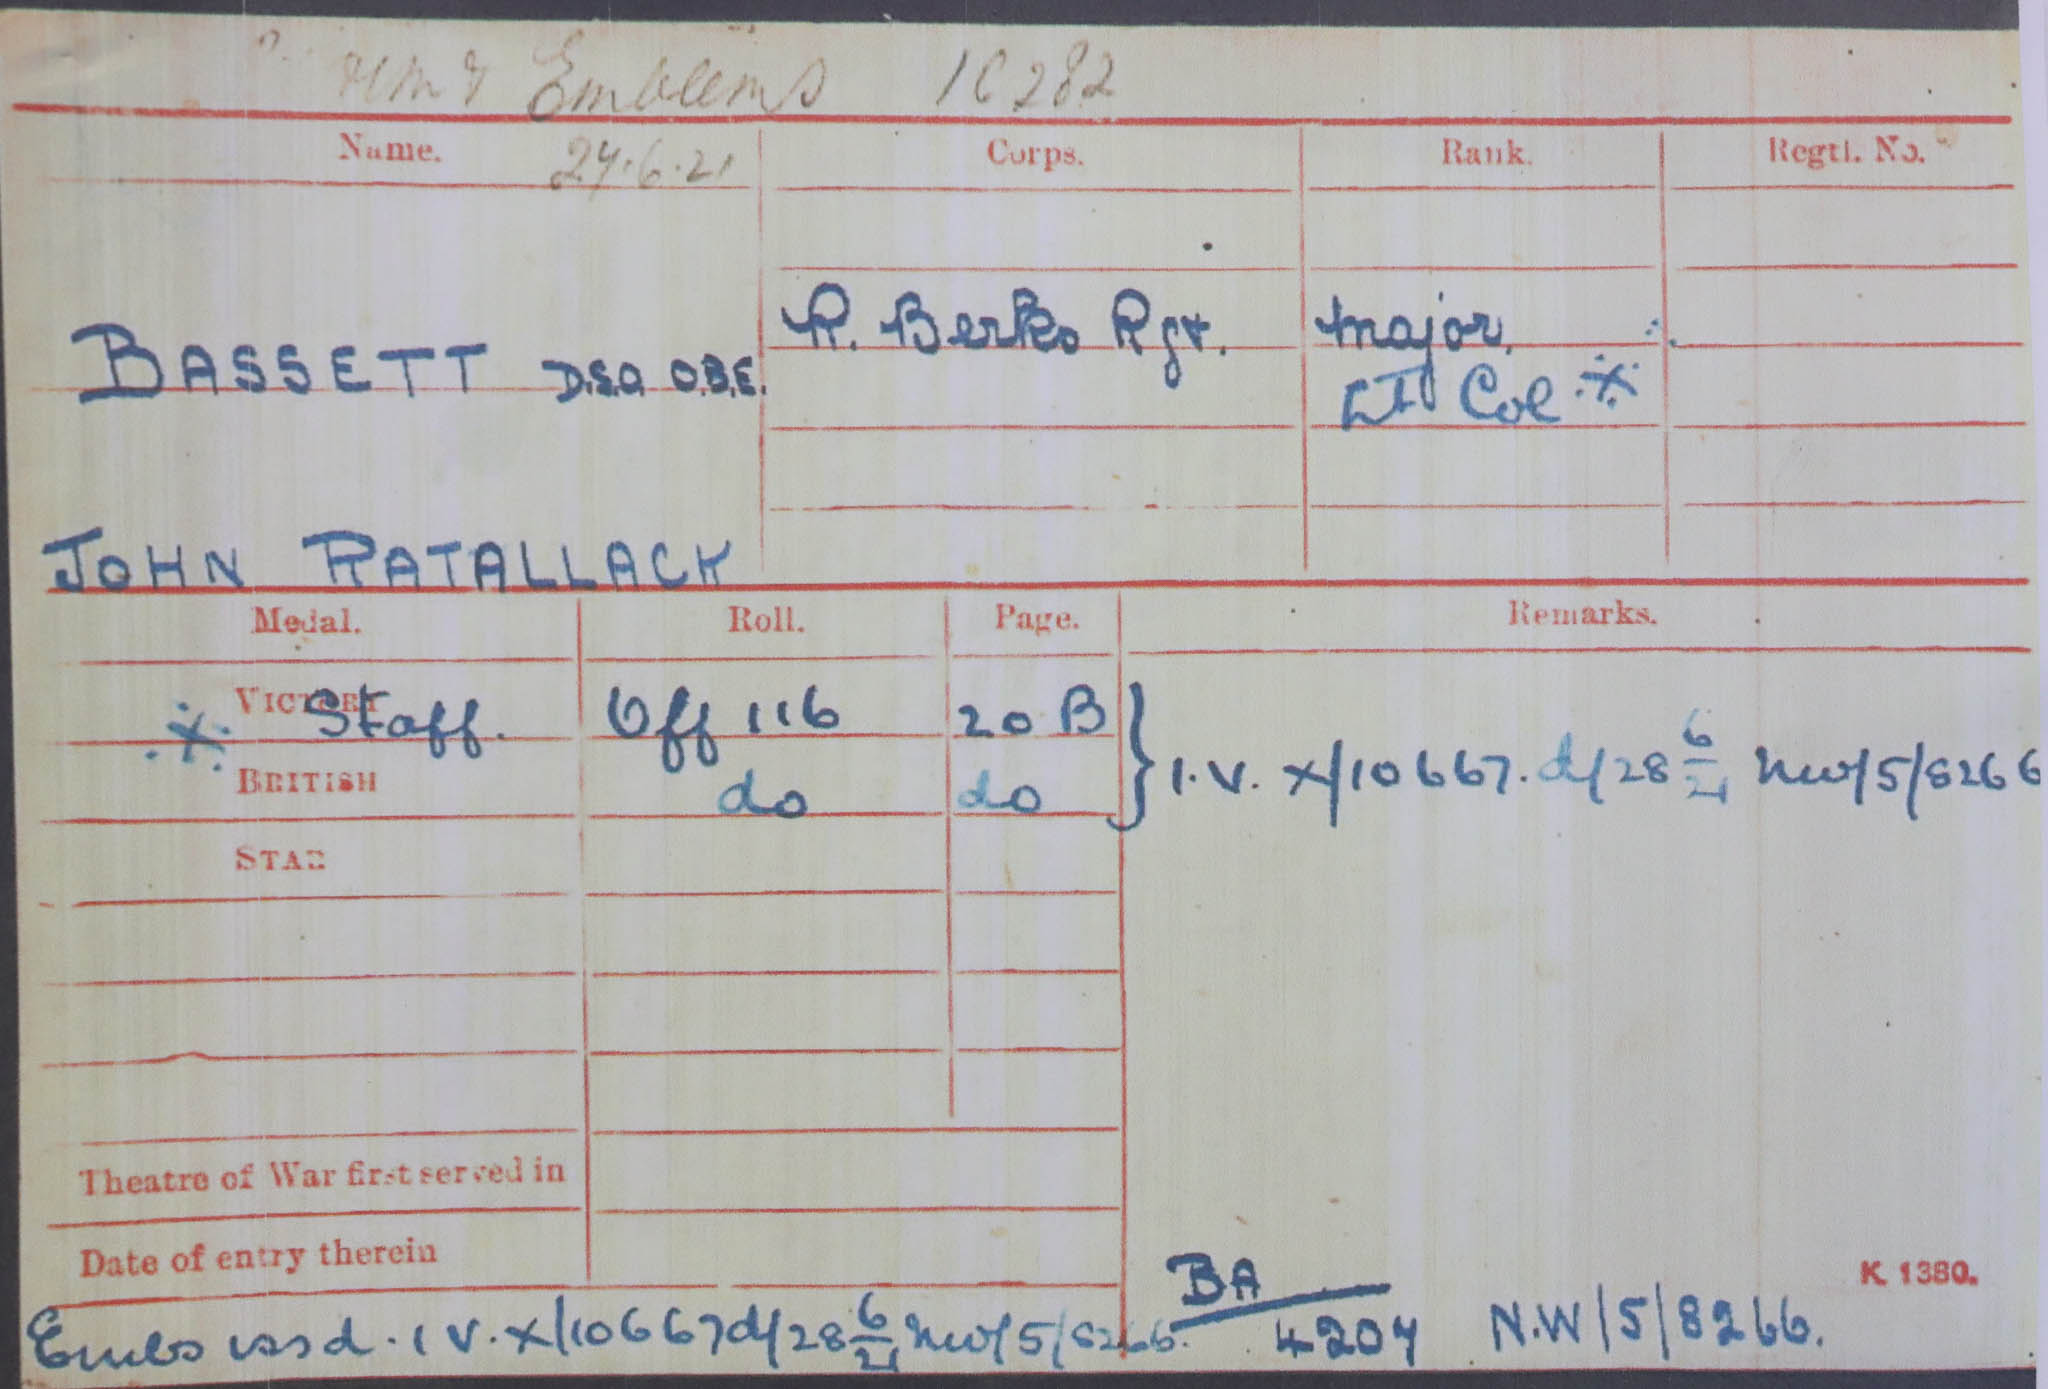 Emblems 1C282
Name. 24.6.21 Corps. Rank. Regtl. No.
R. Berks Rgt. Major.
BASSETT D.S.O. O.B.E. Lt Col ※
JOHN RATALLACK
Medal. Roll. Page. Remarks.
VICTORY ※ Staff. Off 116 20 B
BRITISH do do } I.V. X/10667. d/28 6/21 NW/5/8266
STAR
Theatre of War first served in
Date of entry therein
K 1380.
Embs issd. I V. X/10667 d/28 6/21 NW/5/8266. BA/4207 N.W/5/8266.